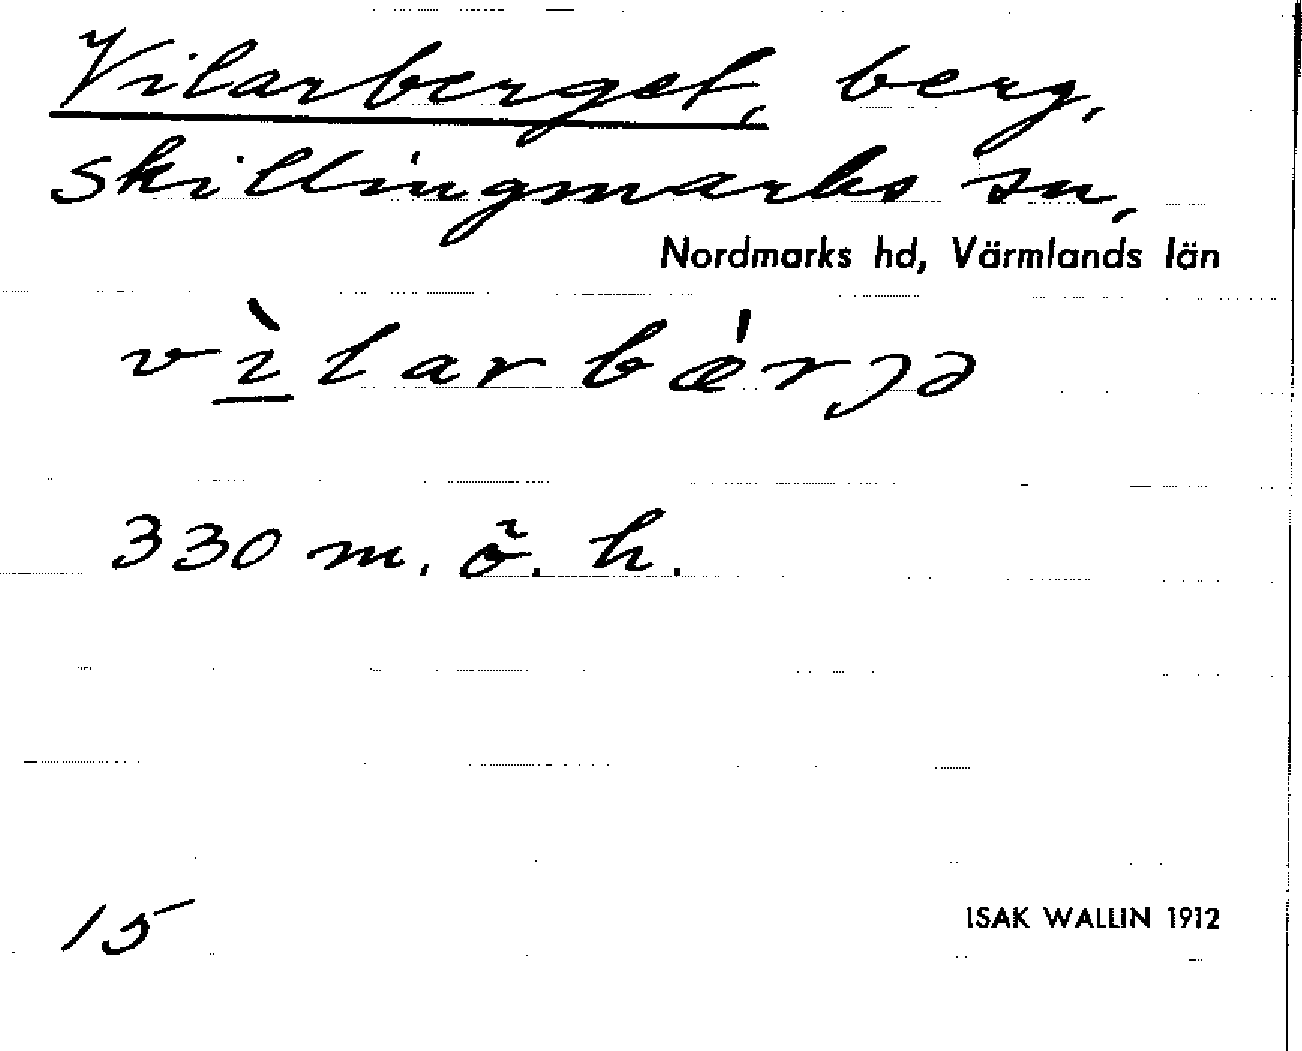 Vilarberget, berg,
Skillingmarks sn,
Nordmarks hd, Värmlands län
vìlarbǽrjə
330 m. ö. h.
15
ISAK WALLIN 1912